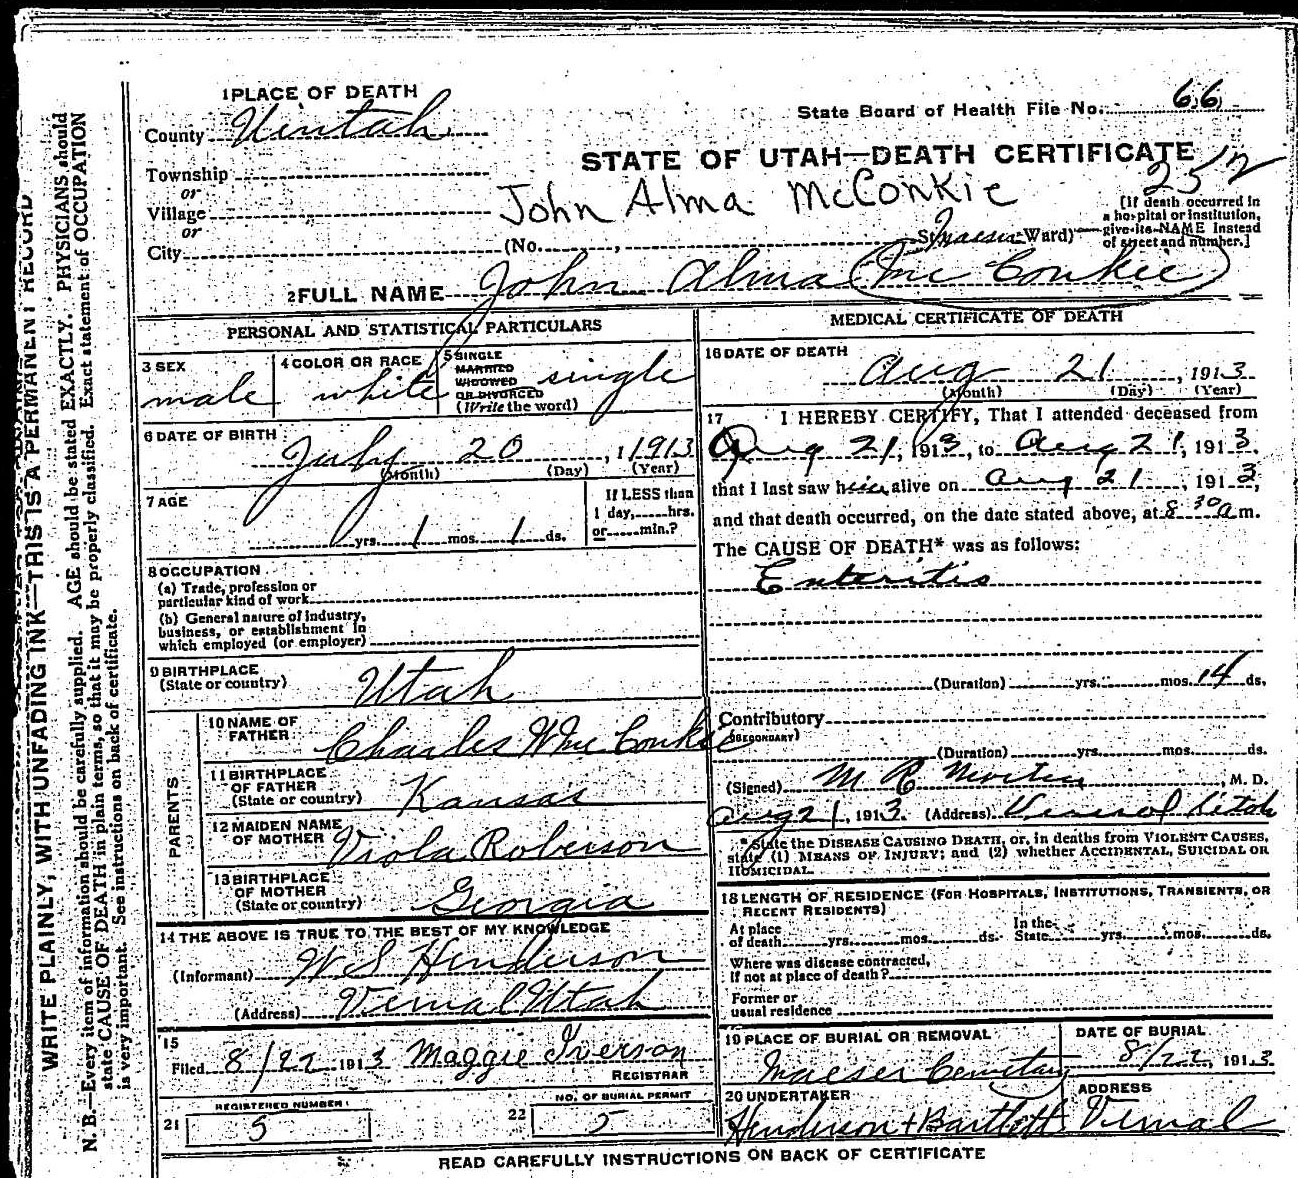 1 PLACE OF DEATH
County Uintah
State Board of Health File No. 66
STATE OF UTAH—DEATH CERTIFICATE
Township
or
Village
or
City
John Alma McConkie
(No. , St. Maeser Ward)
[If death occurred in
a hospital or institution,
give its NAME instead
of street and number.]
2 FULL NAME John Alma (Mc Conkie)
PERSONAL AND STATISTICAL PARTICULARS
3 SEX
male
4 COLOR OR RACE
white
5 SINGLE
MARRIED
WIDOWED
OR DIVORCED
(Write the word)
single
6 DATE OF BIRTH
July 20, 1913
(Month) (Day) (Year)
7 AGE
yrs. 1 mos. 1 ds.
If LESS than
1 day, hrs.
or min.?
8 OCCUPATION
(a) Trade, profession or
particular kind of work
(b) General nature of industry,
business, or establishment in
which employed (or employer)
9 BIRTHPLACE
(State or country)
Utah
PARENTS
10 NAME OF
FATHER
Charles W Mc Conkie
11 BIRTHPLACE
OF FATHER
(State or country)
Kansas
12 MAIDEN NAME
OF MOTHER
Viola Roberson
13 BIRTHPLACE
OF MOTHER
(State or country)
Georgia
14 THE ABOVE IS TRUE TO THE BEST OF MY KNOWLEDGE
(Informant) W S Henderson
(Address) Vernal Utah
15
Filed 8/22 1913 Maggie Iverson
REGISTRAR
REGISTERED NUMBER
21 5
NO. OF BURIAL PERMIT
22 5
MEDICAL CERTIFICATE OF DEATH
16 DATE OF DEATH
Aug 21, 1913
(Month) (Day) (Year)
17 I HEREBY CERTIFY, That I attended deceased from
Aug 21, 1913, to Aug 21, 1913.
that I last saw him alive on Aug 21, 1913,
and that death occurred, on the date stated above, at 8 30 a m.
The CAUSE OF DEATH* was as follows:
Enteritis
(Duration) yrs. mos. 14 ds.
Contributory
(SECONDARY)
(Duration) yrs. mos. ds.
(Signed) M. D.
Aug 21, 1913. (Address) Vernal Utah
*State the DISEASE CAUSING DEATH, or, in deaths from VIOLENT CAUSES,
state (1) MEANS OF INJURY; and (2) whether ACCIDENTAL, SUICIDAL OR
HOMICIDAL.
18 LENGTH OF RESIDENCE (FOR HOSPITALS, INSTITUTIONS, TRANSIENTS, OR
RECENT RESIDENTS)
At place
of death yrs. mos. ds.
In the
State yrs. mos. ds.
Where was disease contracted,
if not at place of death?
Former or
usual residence
19 PLACE OF BURIAL OR REMOVAL
Maeser Cemetary
DATE OF BURIAL
8/22, 1913
20 UNDERTAKER
Henderson + Bartlett
ADDRESS
Vernal
READ CAREFULLY INSTRUCTIONS ON BACK OF CERTIFICATE
WRITE PLAINLY, WITH UNFADING INK—THIS IS A PERMANENT RECORD
N. B.—Every item of information should be carefully supplied. AGE should be stated EXACTLY. PHYSICIANS should
state CAUSE OF DEATH in plain terms, so that it may be properly classified. Exact statement of OCCUPATION
is very important. See instructions on back of certificate.